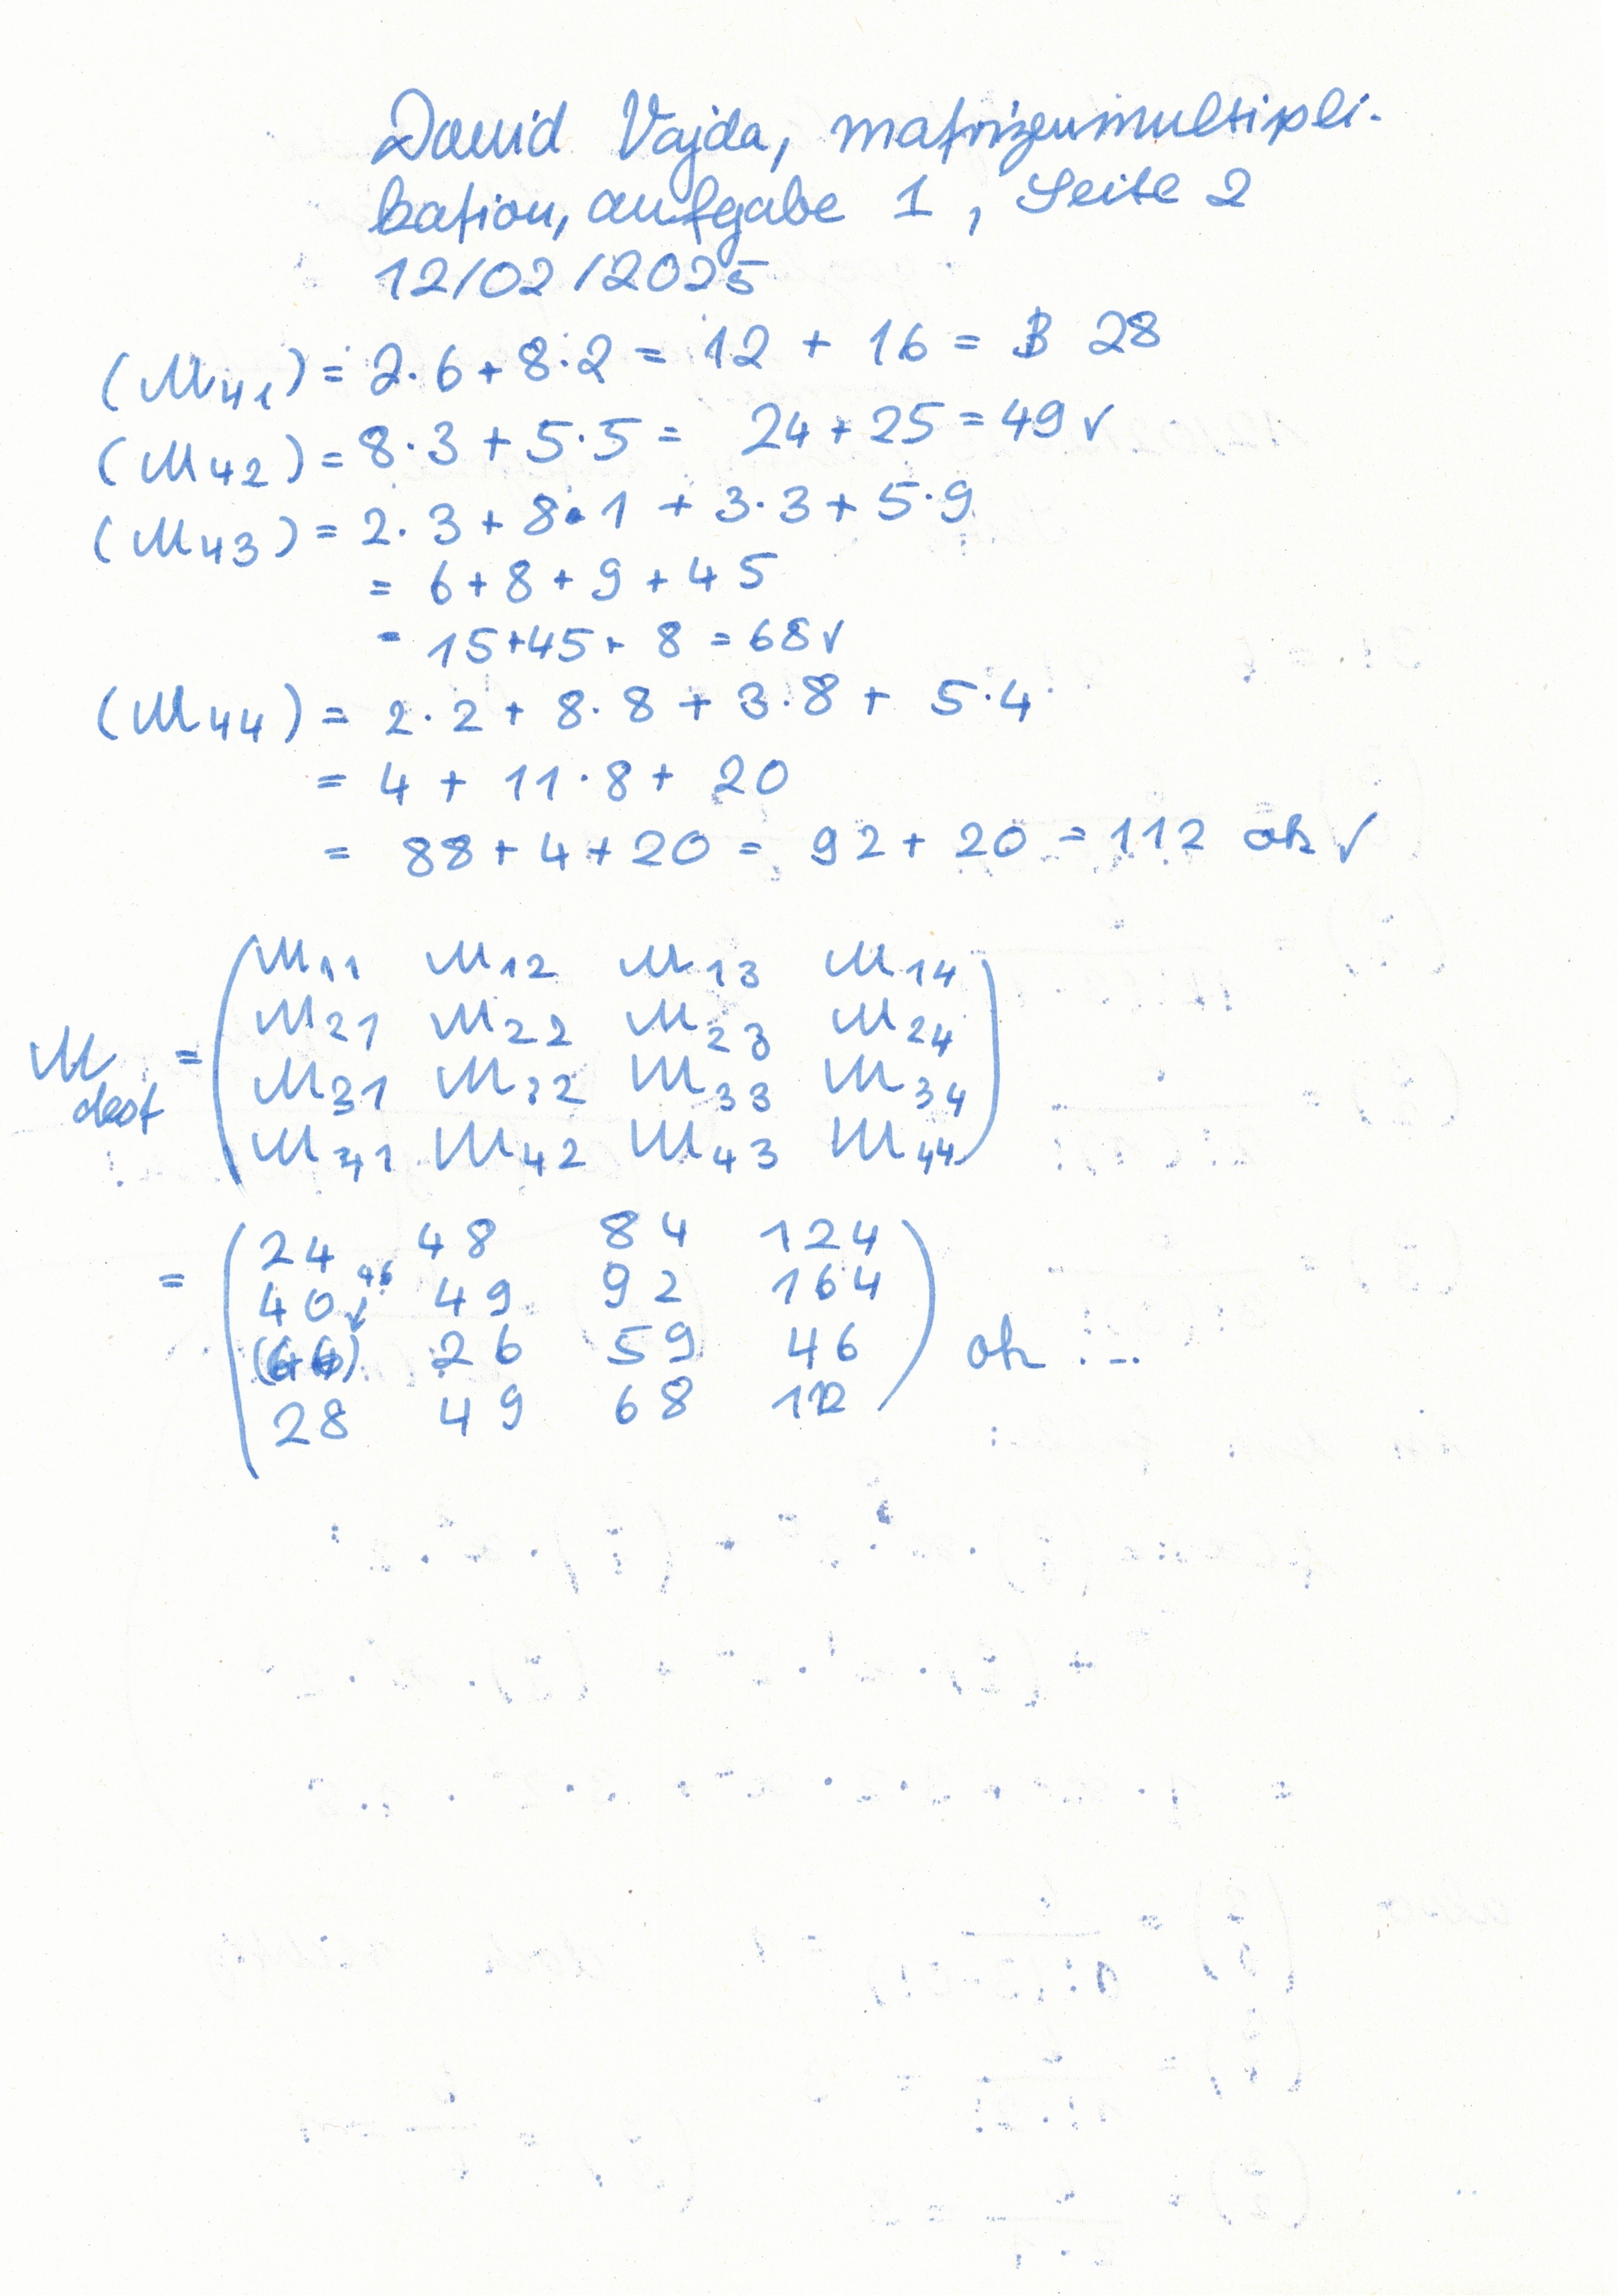 David Vajda, Matrizenmultipli-
kation, Aufgabe 1, Seite 2
12/02/2025
(M41) = 2·6+8·2 = 12 + 16 = 28
(M42) = 8·3+5·5 = 24+25 = 49 √
(M43) = 2·3+8·1 + 3·3+5·9
= 6+8+9+45
= 15+45+8 = 68 √
(M44) = 2·2+8·8+3·8+ 5·4
= 4 + 11·8+ 20
= 88+4+20 = 92+20 = 112 ok √
M11 M12 M13 M14
M21 M22 M23 M24
M dest =
M31 M32 M33 M34
M41 M42 M43 M44
24 48 84 124
= 40 49 92 164
46
26 59 46 ok ...
28 49 68 112